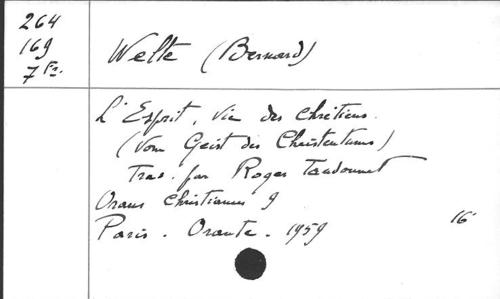 264
169
7 Fr.
Welte (Bernard)
L'Esprit, vie des chrétiens.
(Vom Geist des Christentums)
Trad. par Roger Tandonnet
Orans Christianus 9
Paris. Orante. 1959
16°